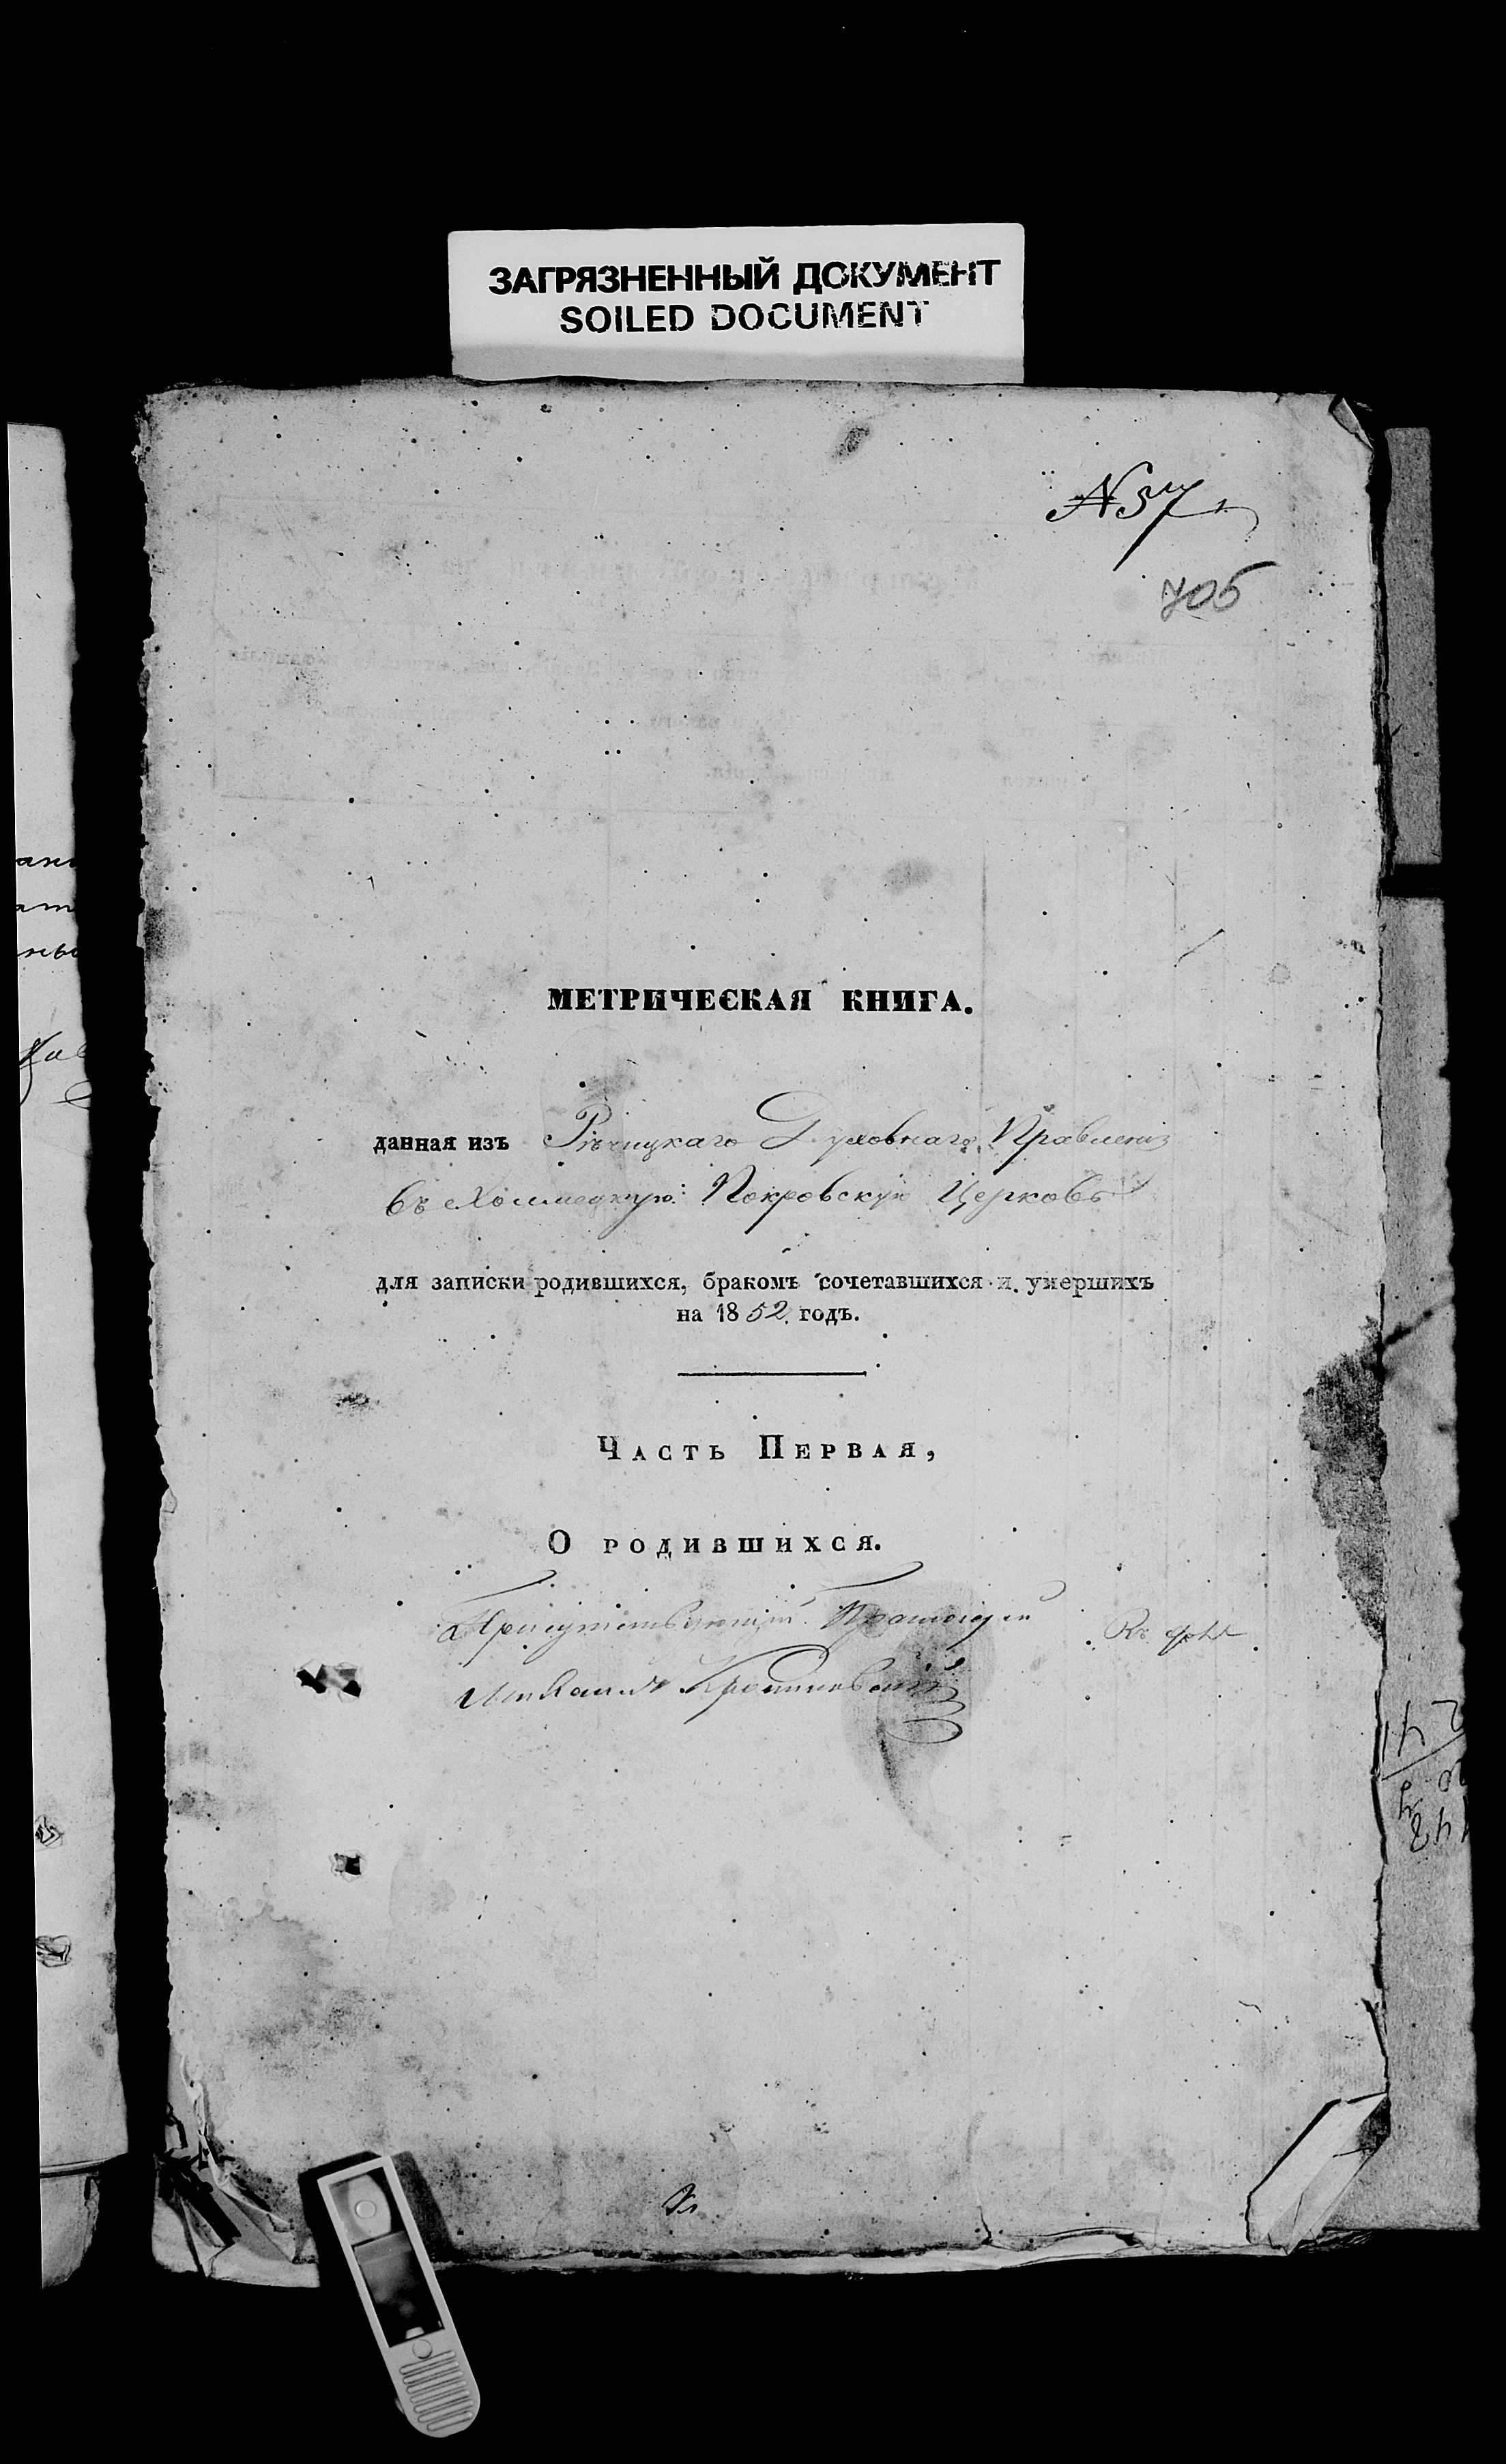 ЗАГРЯЗНЕННЫЙ ДОКУМЕНТ
SOILED DOCUMENT
№ 57
705
МЕТРИЧЕСКАЯ КНИГА.
данная изъ Рѣчицкаго Духовнаго Правленія
въ Холмецкую Покровскую Церковь
для записки родившихся, бракомъ сочетавшихся и умершихъ
на 1852 годъ.
Часть Первая,
О родившихся.
Присутствующій